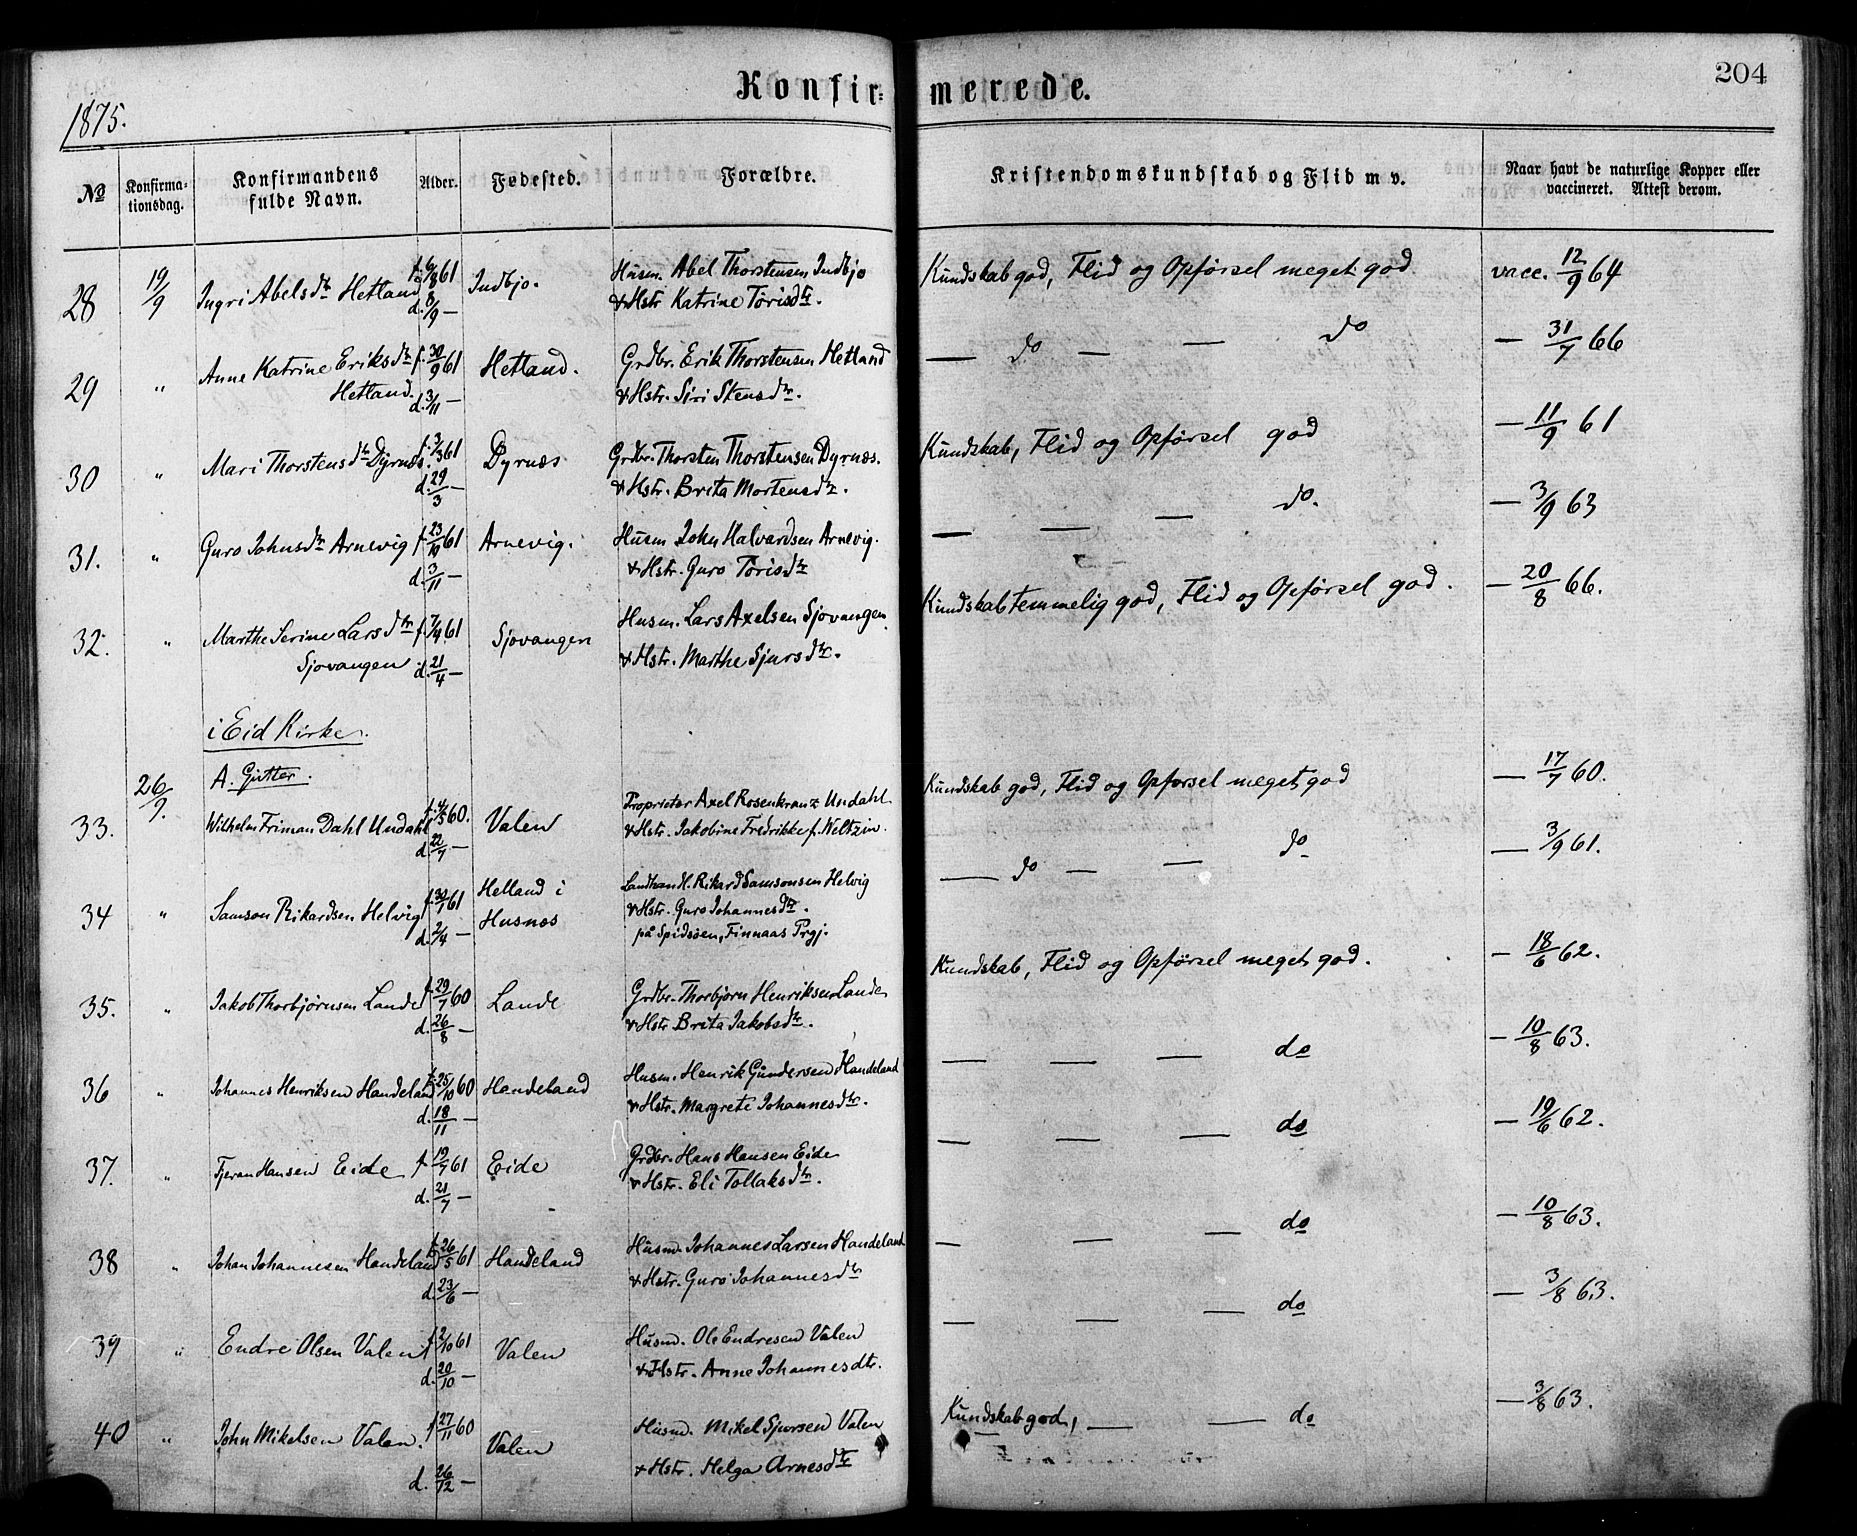 Konfirmerede.
204
1875.
No
Konfirmationsdag.
Konfirmandens fulde Navn.
Alder.
Fødested.
Forældre.
Kristendomskundskab og Flid m v.
Naar havt de naturlige Kopper eller vaccineret. Attest derom.
28 19/9 Ingri Abelsdtr Hetland f. 6/8 61 Indbjo. Husm. Abel Thorstensen Indbjo Kundskab god, Flid og Opførsel meget god vacc. 12/9 64
d. 8/9 — & Hstr Katrine Torisdtr.
29 " Anne Katrine Eriksdtr f. 30/9 61 Hetland. Grdbr. Erik Thorstensen Hetland — do — — do — 31/7 66
Hetland. d. 3/11 — & Hstr. Siri Stensdtr.
30 " Mari Thorstensdtr Dyrnæs. f. 3/3 61 Dyrnæs Grdbr. Thorsten Thorstensen Dyrnæs. Kundskab, Flid og Opførsel god — 11/9 61
d. 29/3 — & Hstr. Brita Mortensdtr.
31. " Guro Johnsdtr Arnevig f. 23/10 61 Arnevig. Husm John Halvardsen Arnevig. — — — do. — 3/9 63
d. 3/11 — & Hstr. Guro Torisdtr
32. " Marthe Serine Larsdtr f. 7/4 61 Sjovangen Husm. Lars Axelsen Sjovangen Kundskab temmelig god, Flid og Opførsel god. — 20/8 66.
Sjovangen d. 21/4 — & Hstr. Marthe Sjursdtr.
i Eid Kirke.
A. Gutter.
33. 26/9. Wilhelm Friman Dahl Undahl f. 4/5 60. Valen Proprietær Axel Rosenkranz Undahl Kundskab god, Flid og Opførsel meget god — 17/7 60.
d. 22/7 — & Hstr. Jakobine Fredrikke f. Weltzin.
34 " Samson Rikardsen Helvig f. 30/1 61 Helland i Landhan. H. Rikard Samsonsen Helvig — do — — do — 3/9 61.
d. 2/4 — Husnæs & Hstr. Guro Johannesdtr.
på Spidsøen, Finnaas Prgj.
35. " Jakob Thorbjørnsen Lande f. 29/7 60 Lande Grdbr. Thorbjørn Henriksen Lande Kundskab, Flid og Opførsel meget god. — 18/6 62.
d. 26/8 — & Hstr Brita Jakobsdtr.
36 " Johannes Henriksen Handeland f. 25/10 60 Handeland Husm. Henrik Gundersen Handeland — — — do — 10/8 63.
d. 18/11 — & Hstr. Margrete Johannesdtr.
37. " Tjeran Hansen Eide f. 19/7 61 Eide Grdbr. Hans Hansen Eide — — — do — 19/6 62.
d. 21/7 — & Hstr. Eli Tollaksdtr.
38 " Johan Johannesen Handeland f. 26/5 61 Handeland Husmd. Johannes Larsen Handeland — — — do — 10/8 63.
d. 23/6 — & Hstr. Guro Johannesdtr
39 " Endre Olsen Valen f. 2/10 61 Valen Husmd. Ole Endresen Valen — — — do — 3/8 63.
d. 20/10 — & Hstr. Anne Johannesdtr.
40 " John Mikelsen Valen. f. 27/11 60 Valen Husmd. Mikel Sjursen Valen Kundskab god, — — do — 3/8 63.
d. 26/12 — & Hstr. Helga Arnesdtr